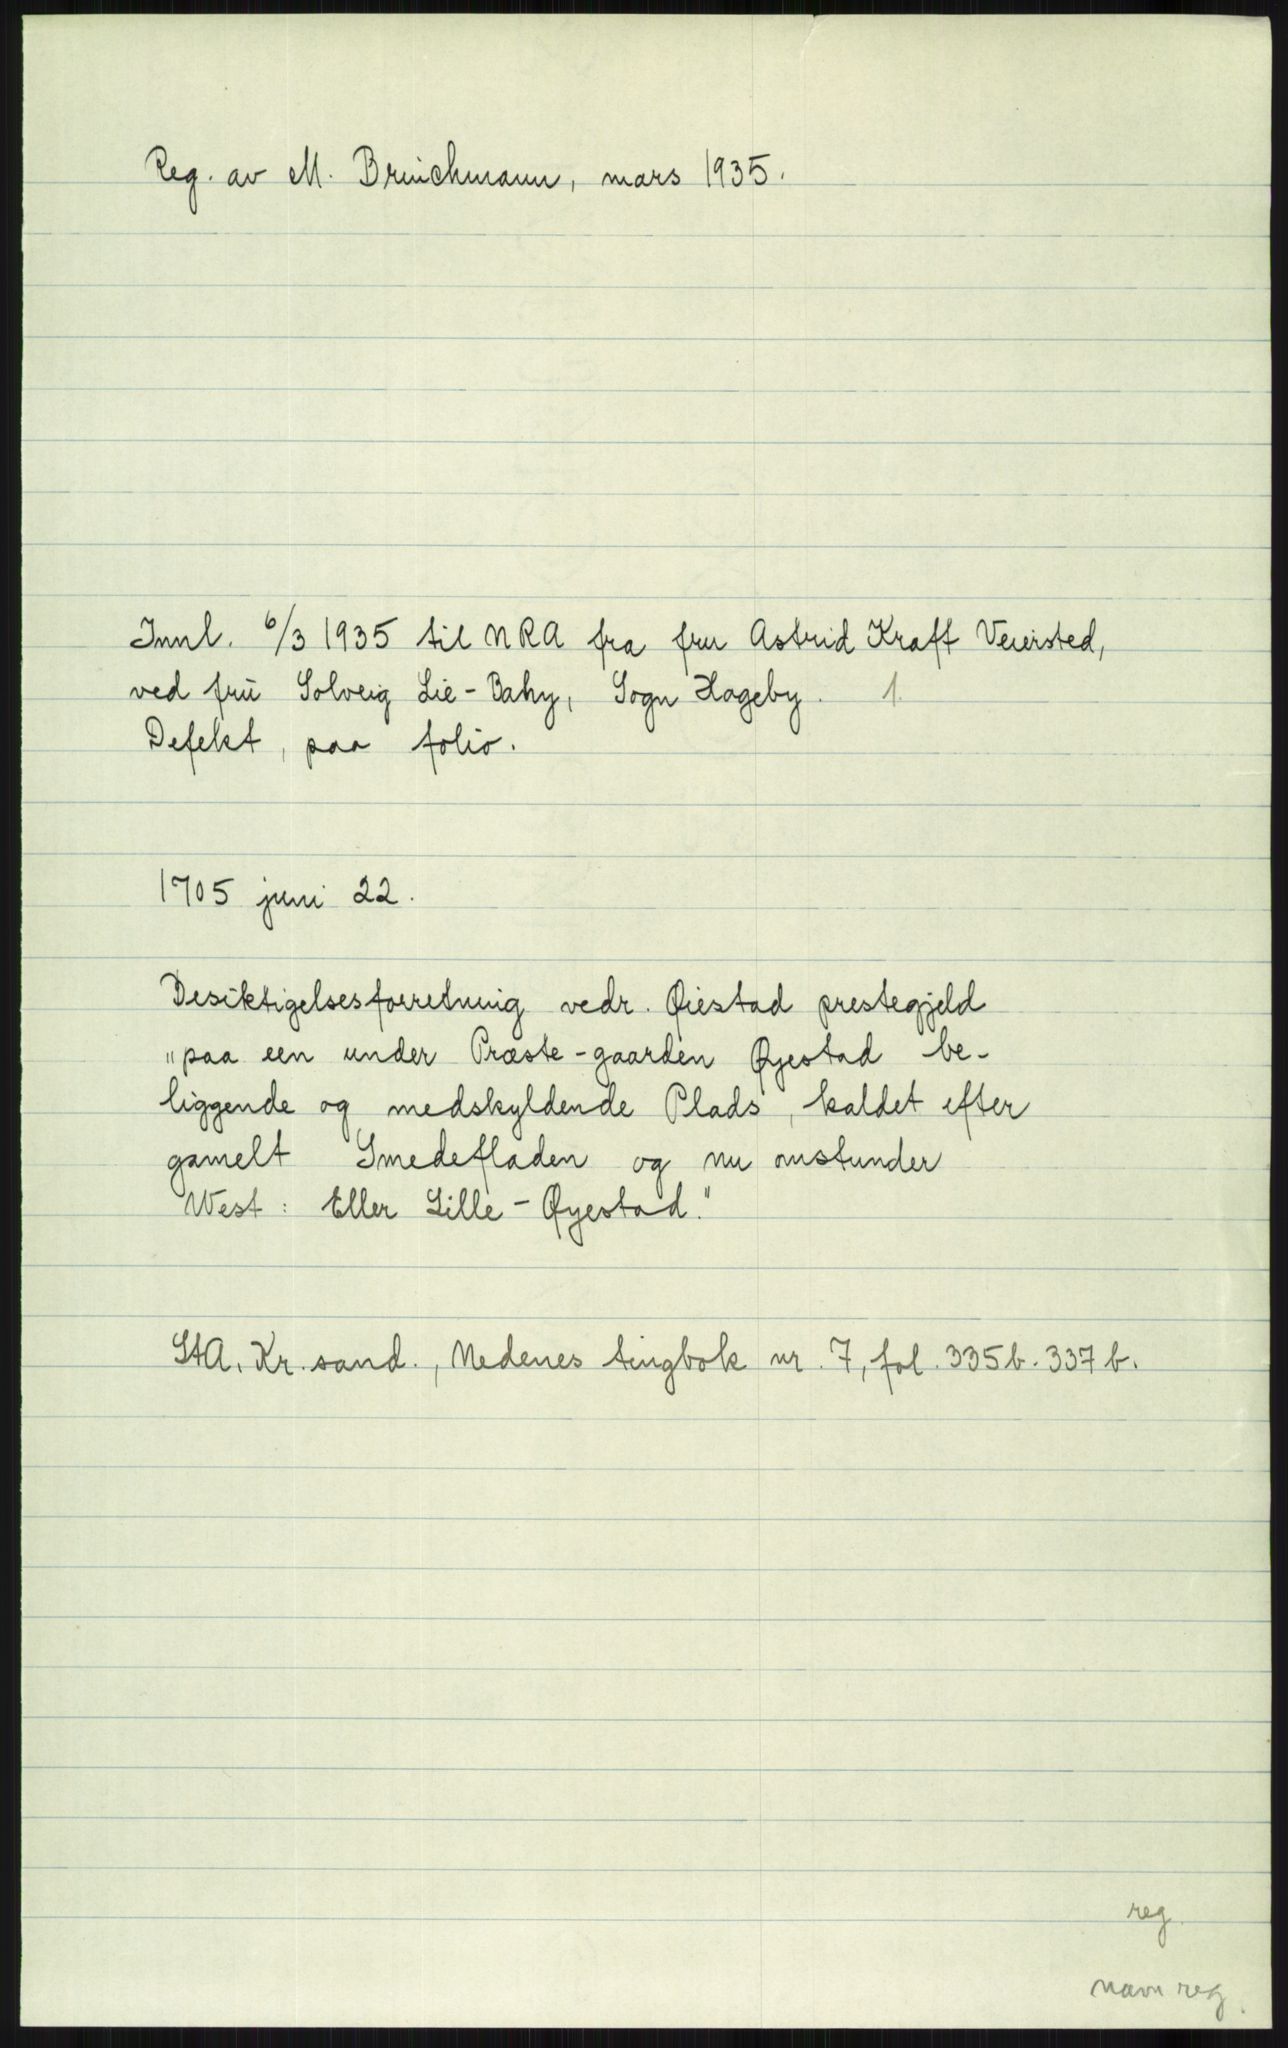 Reg. av M. Brinchmann, mars 1935.
Innl. 6/3 1935 til NRA fra fru Astrid Kraft Veiersted,
ved fru Solveig Lie-Bahy, Sogn Hageby. 1
Defekt, paa folio.
1705 juni 22.
Besiktigelsesforretning vedr. Øiestad prestegjeld
„paa een under Præste-gaarden Øyestad be-
liggende og medskyldende Plads, kaldet efter
gamelt Smedefladen og nu omstunder
West: Eller Lille-Øyestad."
StA. Kr. sand., Nedenes tingbok nr. 7, fol. 335b-337b.
reg.
navn reg.